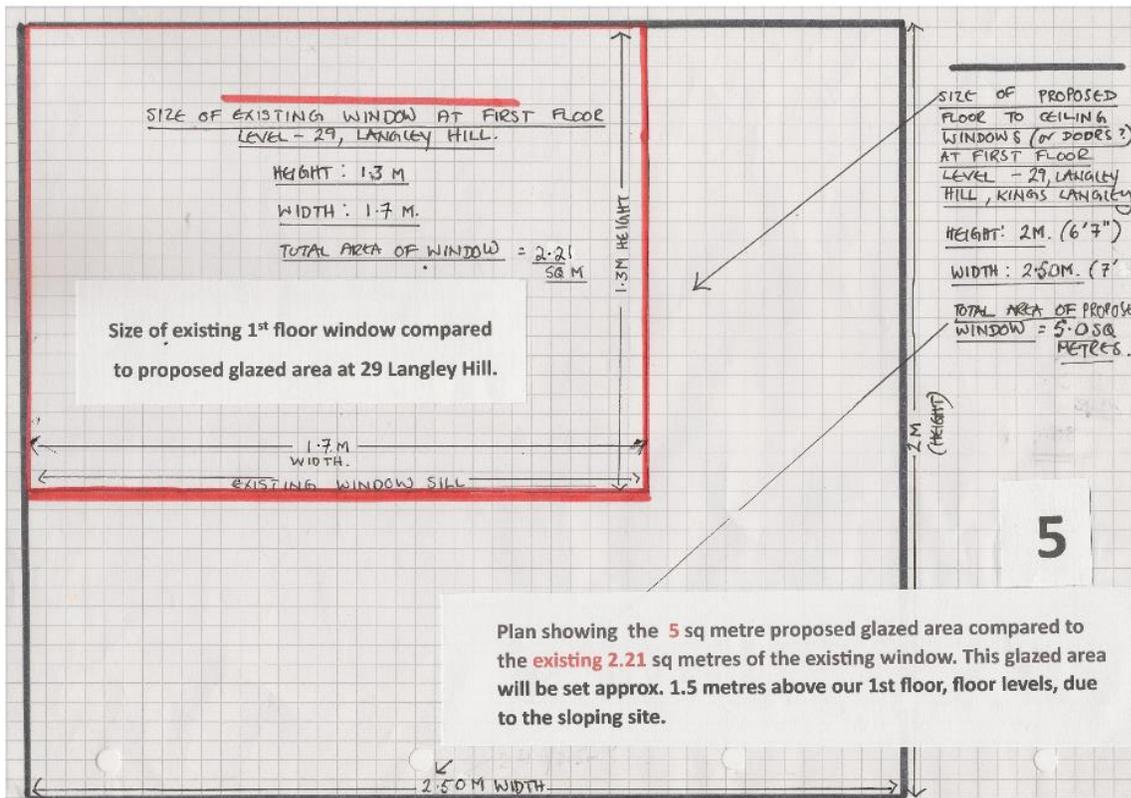 SIZE OF EXISTING WINDOW AT FIRST FLOOR
LEVEL - 29, LANGLEY HILL.
HEIGHT : 1.3 M
WIDTH : 1.7 M.
TOTAL AREA OF WINDOW = 2.21
SQ M
1.3M HEIGHT
Size of existing 1st floor window compared
to proposed glazed area at 29 Langley Hill.
1.7 M
WIDTH.
EXISTING WINDOW SILL
SIZE OF PROPOSED
FLOOR TO CEILING
WINDOWS (or DOORS?)
AT FIRST FLOOR
LEVEL - 29, LANGLEY
HILL, KINGS LANGLEY
HEIGHT: 2M. (6'7")
WIDTH : 2.50M. (7'
TOTAL AREA OF PROPOSE
WINDOW = 5.0 SQ
METRES.
2 M
(HEIGHT)
5
Plan showing the 5 sq metre proposed glazed area compared to
the existing 2.21 sq metres of the existing window. This glazed area
will be set approx. 1.5 metres above our 1st floor, floor levels, due
to the sloping site.
2.50M WIDTH